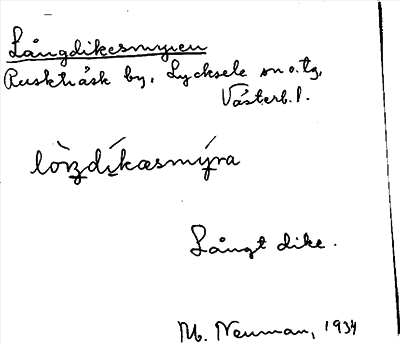 Långdikesmyren
Ruskträsk by, Lycksele sn o. tg,
Västerb. l.
lòŋdíkæsmýra
Långt dike.
M. Neuman, 1934